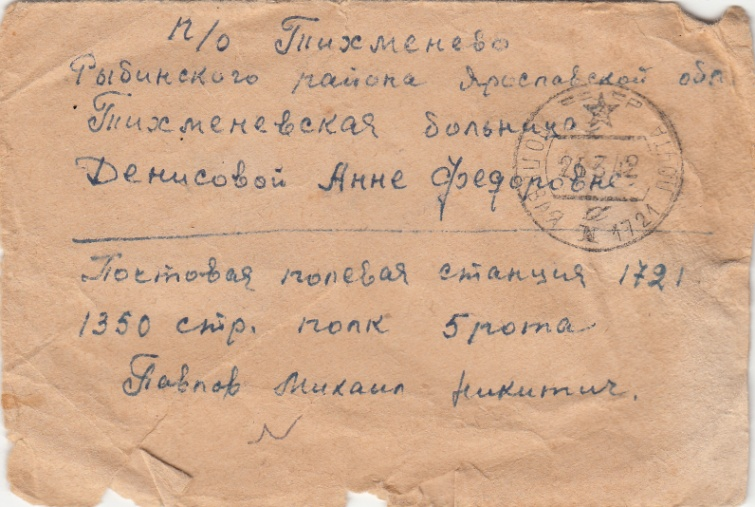 п/о Тихменево
Рыбинского района Ярославской обл.
Тихменевская больница
Денисовой Анне Федоровне
Постовая полевая станция 1721
1350 стр. полк 5 рота
Павлов Михаил Никитич.
ПОЛЕВАЯ ПОЧТА
N 1721